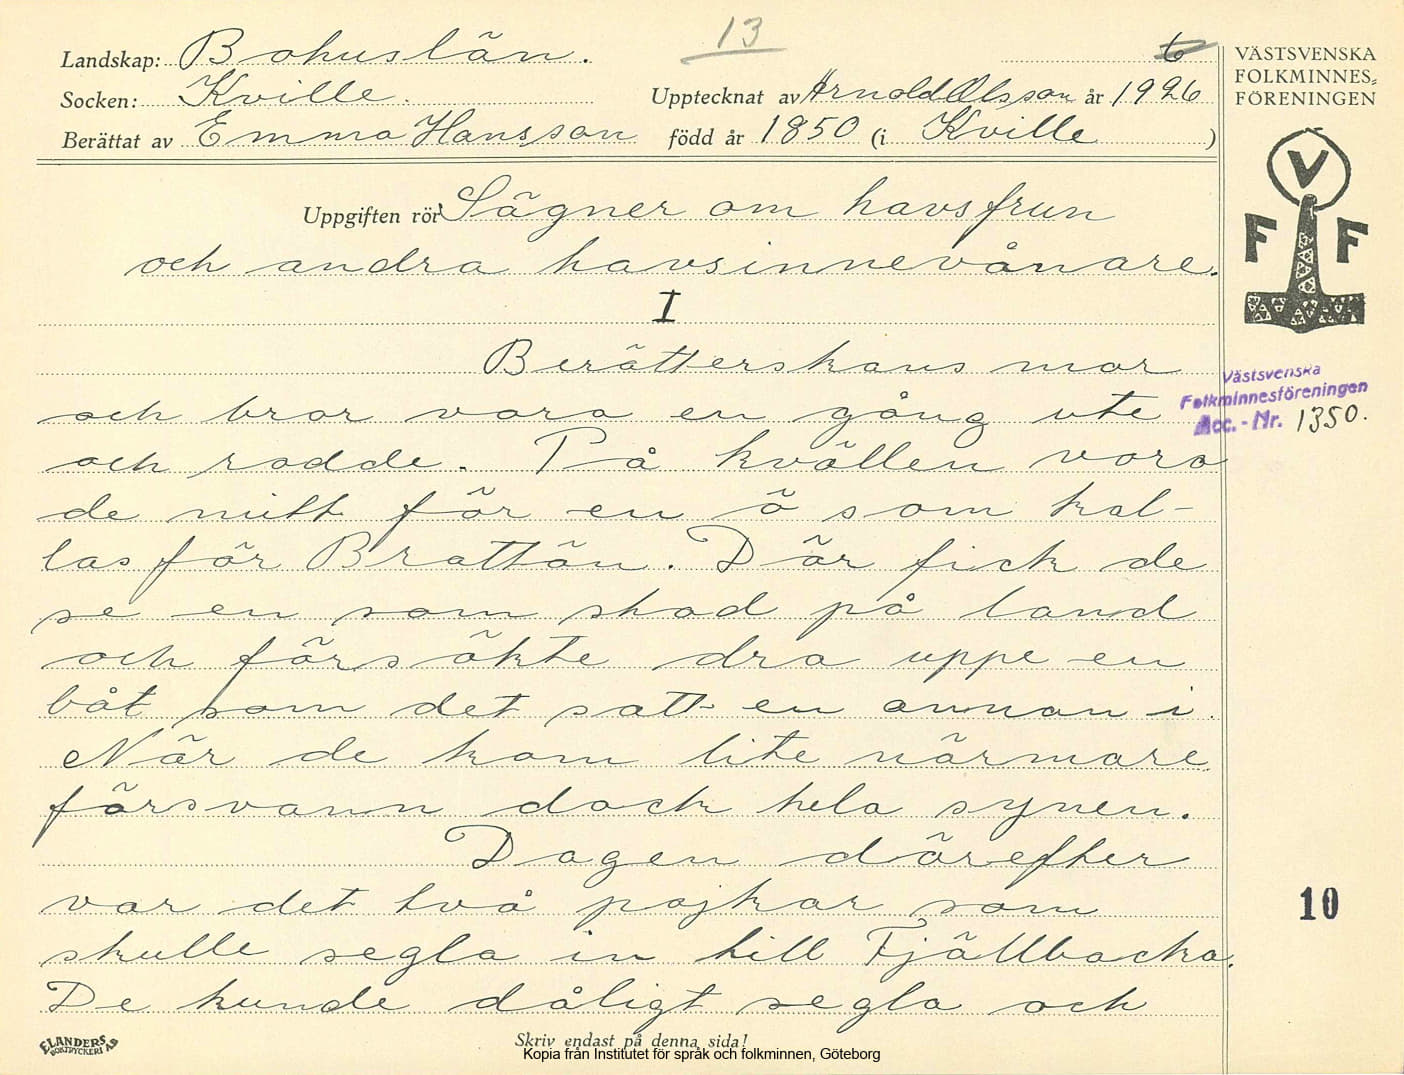 13
6
Landskap: Bohuslän.
Socken: Kville.
Upptecknat av Arnold Olsson år 1926
Berättat av Emma Hansson född år 1850 (i Kville)
VÄSTSVENSKA
FOLKMINNES-
FÖRENINGEN
V
F F
Uppgiften rör Sägner om havsfrun
och andra havsinnevånare.
I
Berätterskans mor
och bror voro en gång ute
och rodde. På kvällen voro
de mitt för en ö som kal-
las för Brattön. Där fick de
se en som stod på land
och försökte dra uppe en
båt som det satt en annan i.
När de kom lite närmare
försvann dock hela synen.
Dagen därefter
var det två pojkar som
skulle segla in till Fjällbacka.
De kunde dåligt segla och
Västsvenska
Folkminnesföreningen
Acc.-Nr. 1350.
10
ELANDERS
BOKTRYCKERI AB
Skriv endast på denna sida!
Kopia från Institutet för språk och folkminnen, Göteborg